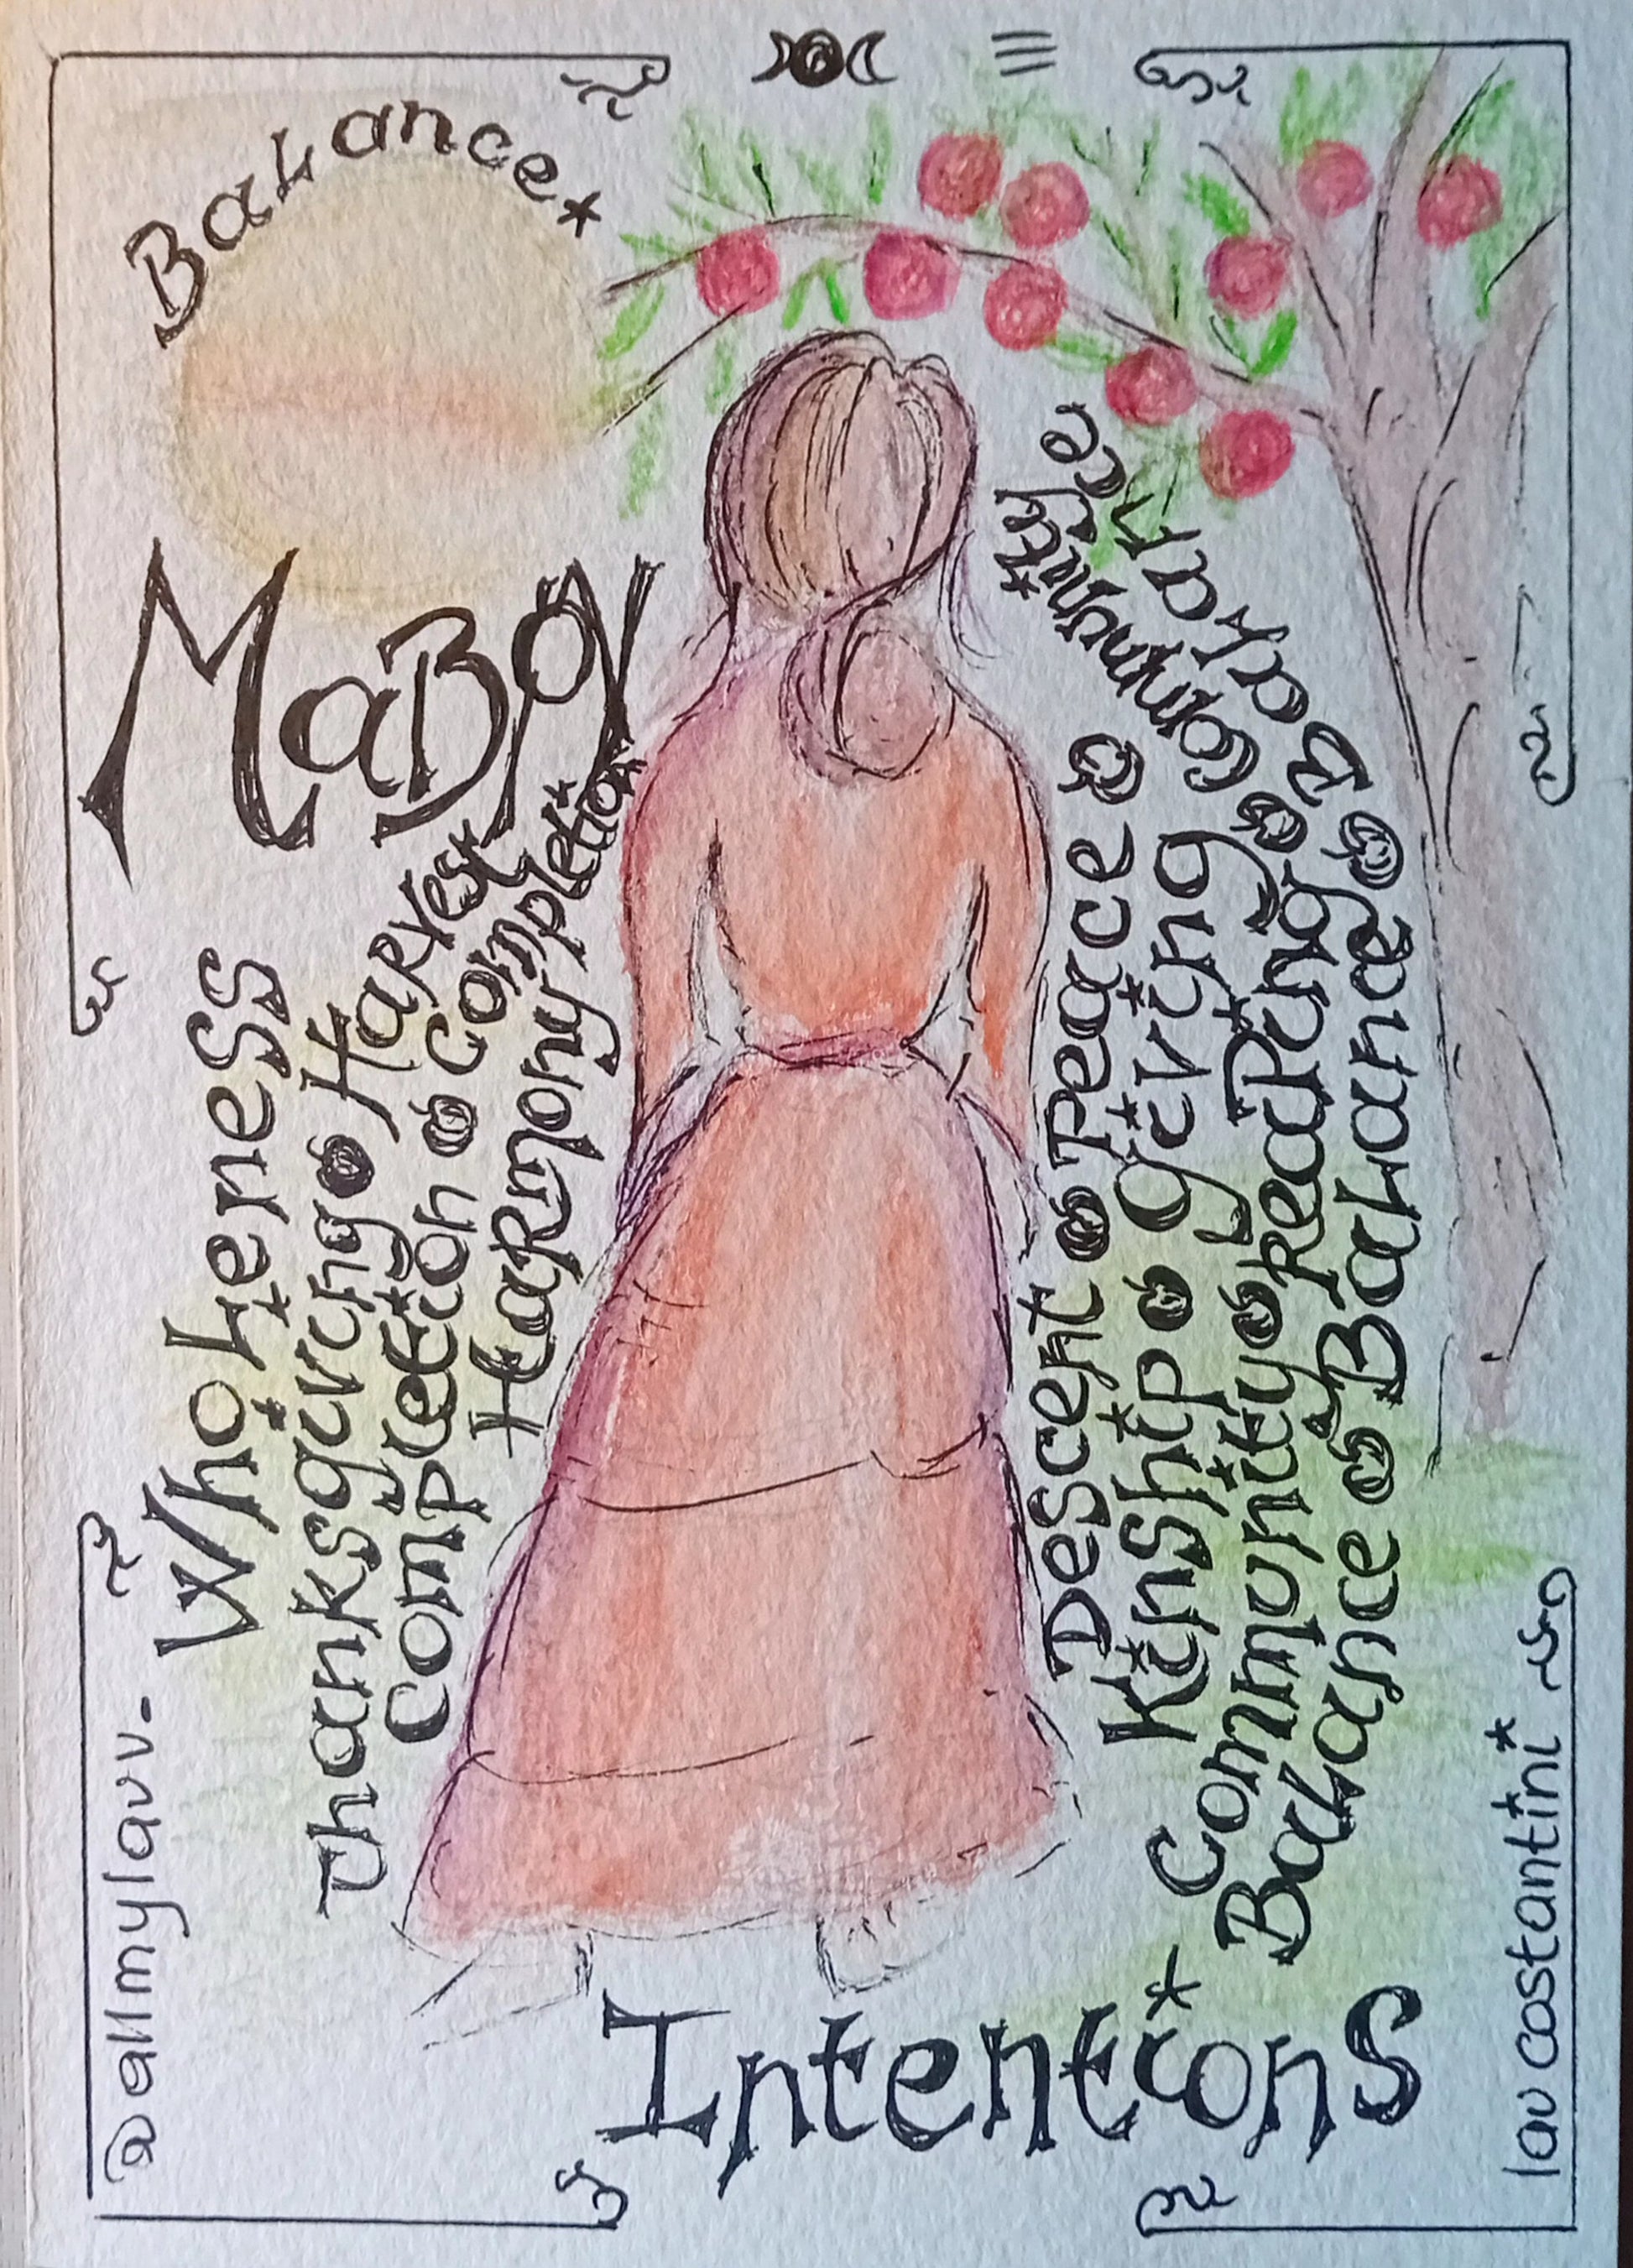 BaLance*
MaBoN
WhoLeness
Thanksgiving Harvest
Completion completion
Harmony
Descent Peace
Kinship giving community
Community Reaping BaLance
BaLance BaLance
Intentions
@allmylavv_
lav costantini